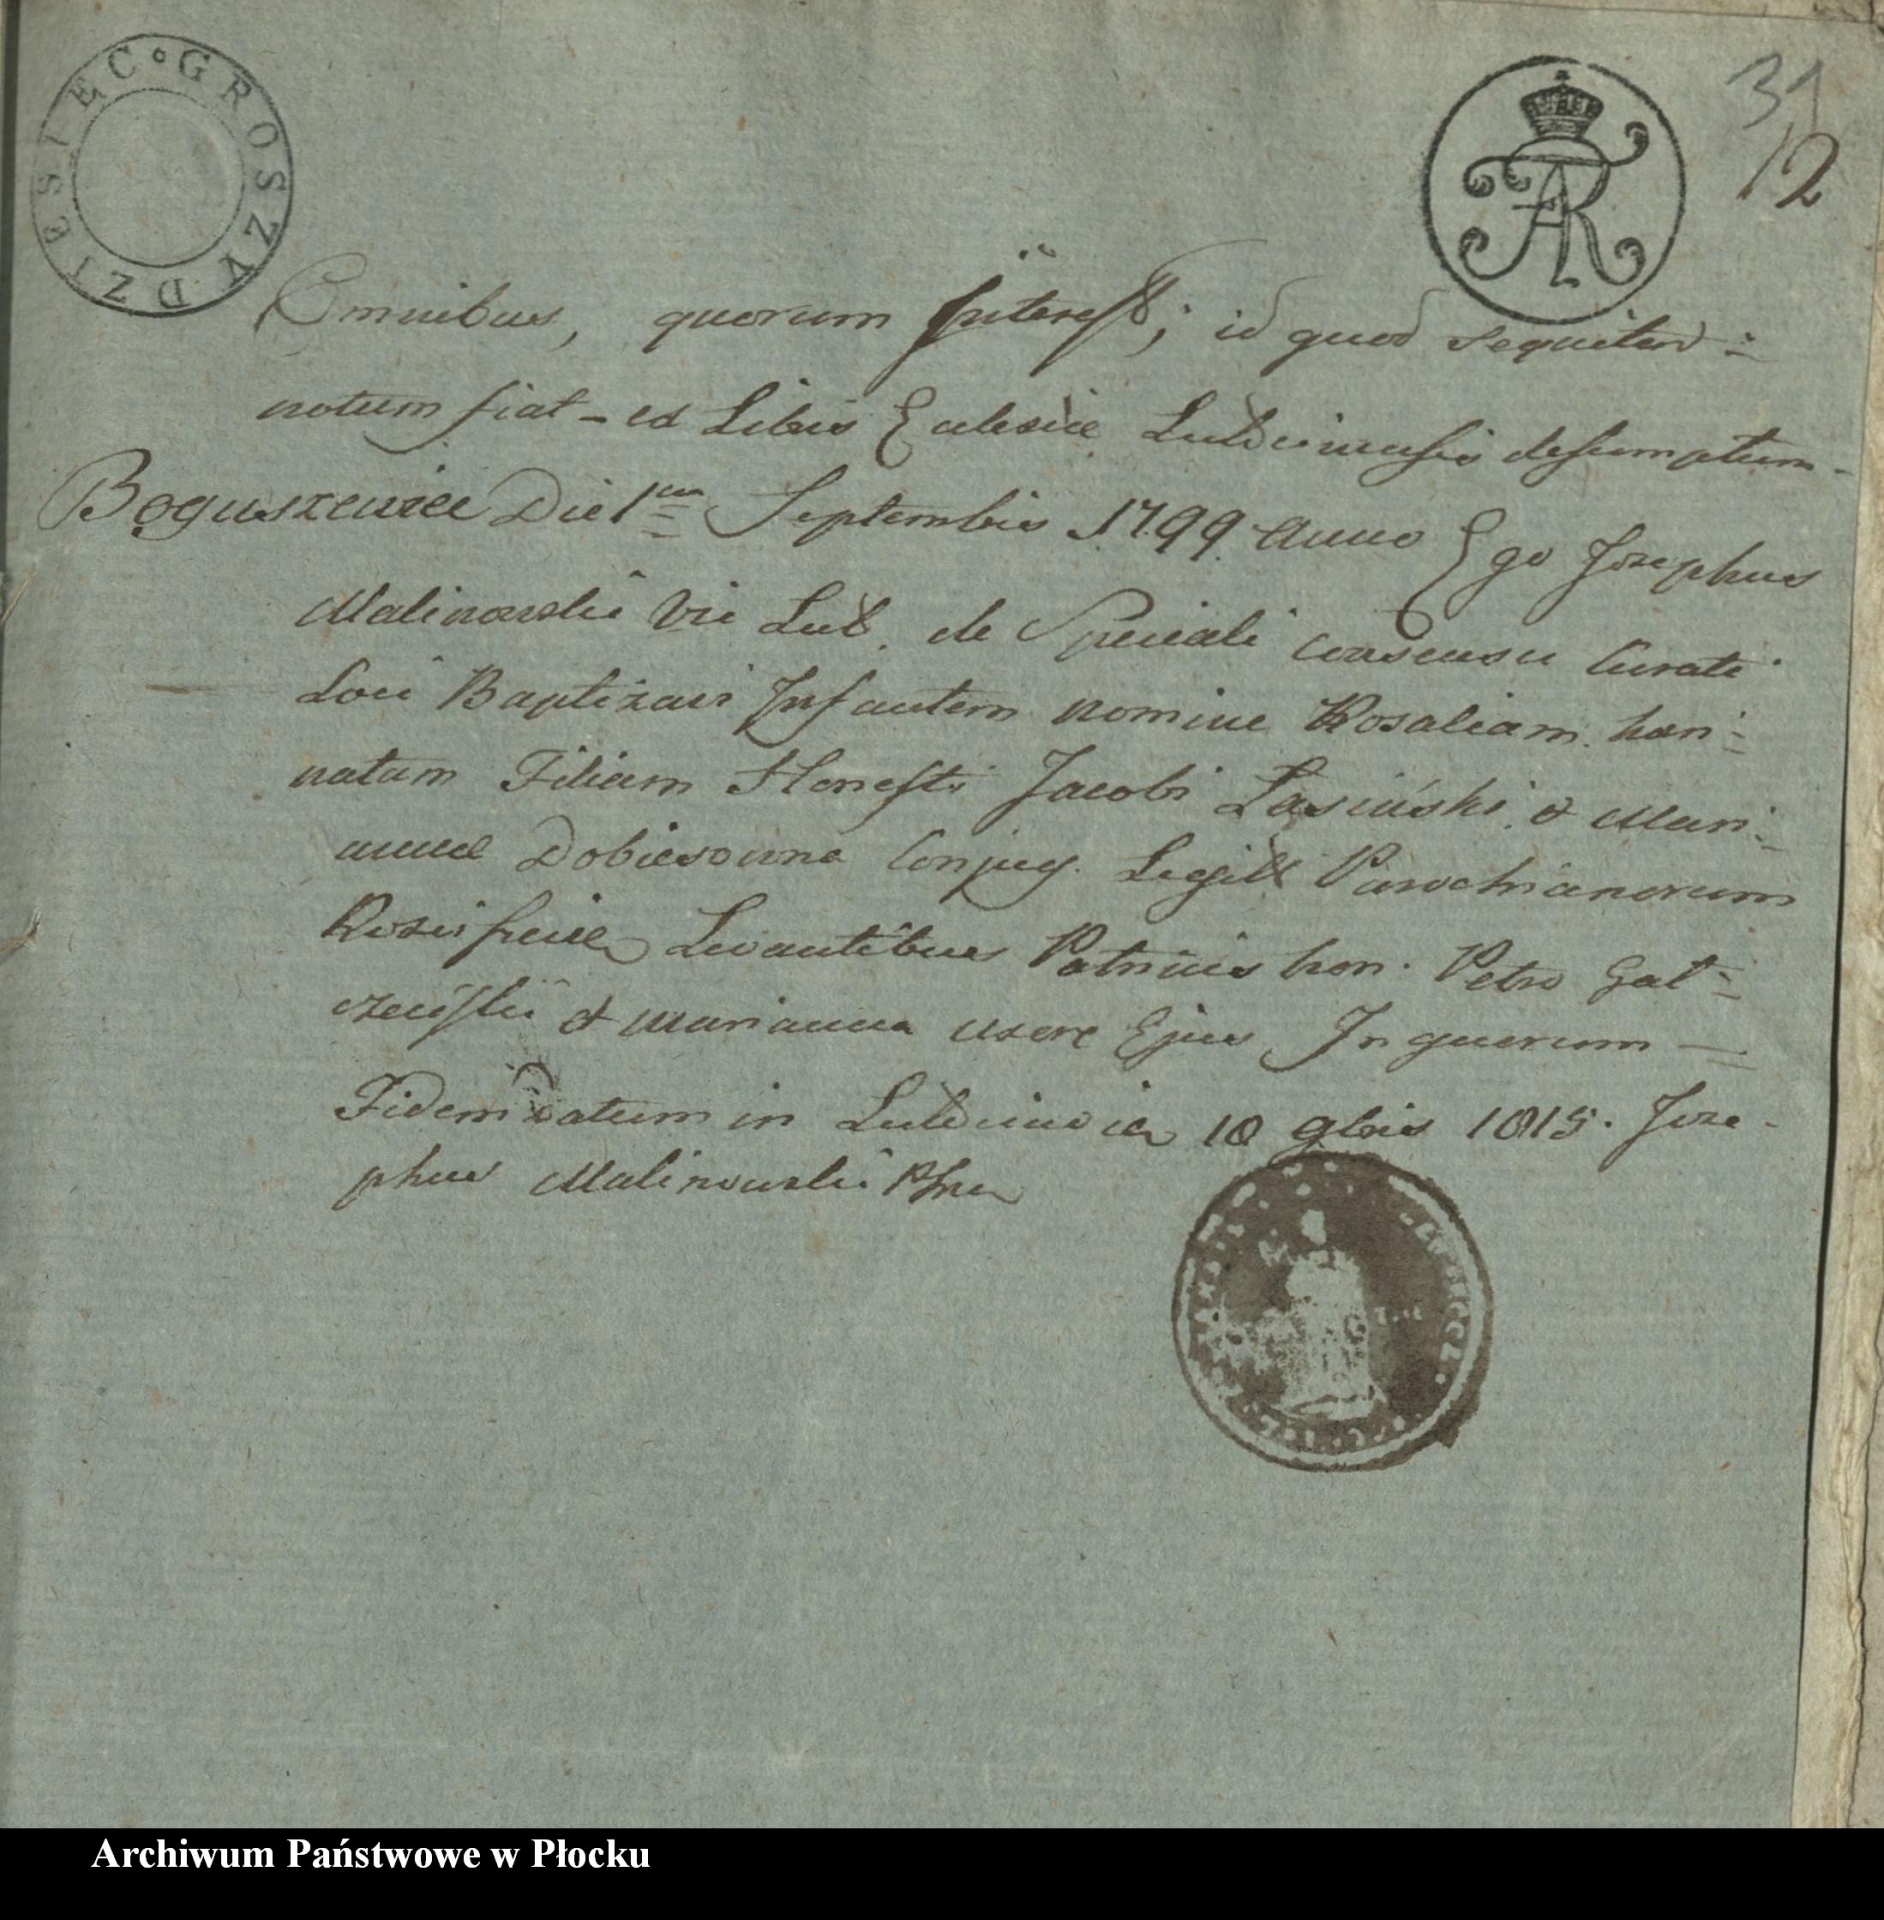 DZIESIEC · GROSZY
31
12
Omnibus, quorum Interest; id quod sequitur
notum fiat - ex Libris Eclesiæ desumptum
Boguszewiec Die 1ma Septembris 1799 Anno Ego Josephus
Malinowski Vic Lub. de Speciali consensu Curati
Loci Baptizavi Infantem nomine Rosaliam. hon
natam Filiam Honesti Jacobi Lasiński & Mari
annæ Dobiesowna Conjug. Legitt Parochianorum
Levantibus Patrinis hon. Petro Gał
czeński & Marianna uxore Ejus In quorum
Fidem Datum in 18 9bris 1815. Joze
phus Malinowski
Archiwum Państwowe w Płocku